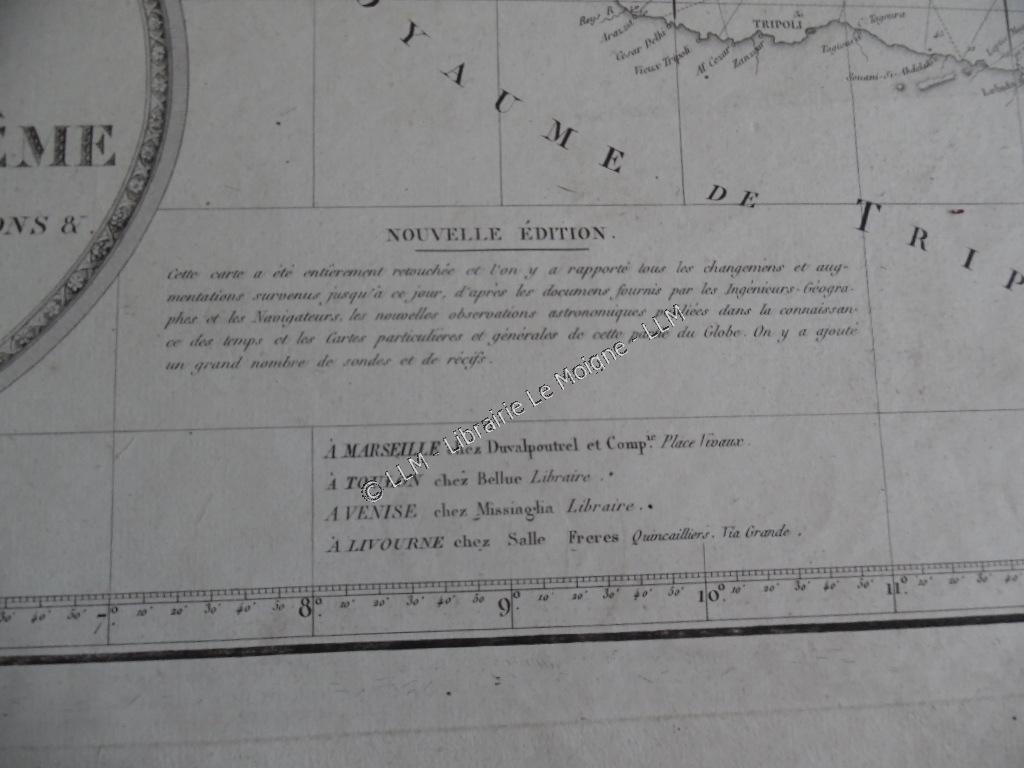 ROYAUME DE TRIP
Bays R.
Arassa
Cesar Delhi
Vieux Tripoli
Al Cesar
Zanzur
TRIPOLI
Tagiura
Tagnura
Souani-St-Abdelati
ÊME
ONS &.
NOUVELLE ÉDITION.
Cette carte a été entièrement retouchée et l'on y a rapporté tous les changemens et aug-
mentations survenus jusqu'à ce jour, d'après les documens fournis par les Ingénieurs-Géogra-
phes et les Navigateurs, les nouvelles observations astronomiques publiées dans la connaissan-
ce des temps et les Cartes particulières et générales de cette partie du Globe. On y a ajouté
un grand nombre de sondes et de récifs.
À MARSEILLE chez Duvalpoutrel et Comp.ie Place Vivaux.
À TOULON chez Bellue Libraire.
A VENISE chez Missiaglia Libraire.
À LIVOURNE chez Salle Freres Quincailliers. Via Grande.
30' 40' 50' 7° 10' 20' 30' 40' 50' 8° 10' 20' 30' 40' 50 9° 10' 20' 30' 40' 50' 10° 10' 20' 30' 40' 50' 11° 10' 20' 30'
© LLM - Librairie Le Moigne - LLM